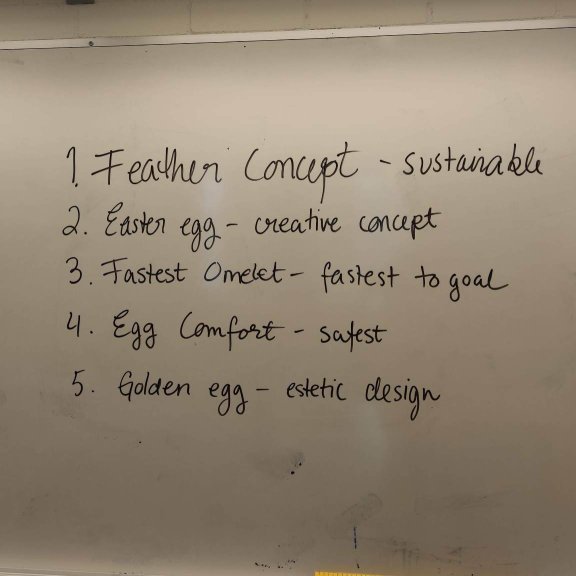 1. Feather Concept - sustainable
2. Easter egg - creative concept
3. Fastest Omelet - fastest to goal
4. Egg Comfort - safest
5. Golden egg - estetic design